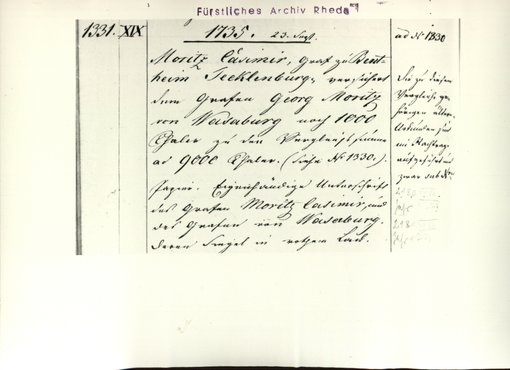 Fürstliches Archiv Rheda
1331. XIX
1735. 23. Sept.
Moritz Casimir, Graf zu Bent-
heim Tecklenburg, verspricht
dem Grafen Georg Moritz
von Wasaburg noch 1000
Thaler zu den Vergleichssumme
ad 9000 Thaler. (Siehe Nr. 1330.).
Papier. Eigenhändige Unterschrift
des Grafen Moritz Casimir, und
des Grafen von Wasaburg.
Deren Siegel in rothem Lack.
ad Nr. 1330
Die zu diesem
Vergleiche ge-
hörigen ältern
Urkunden sind
im Nachtrag
aufgeführt
zwar sub Nr.